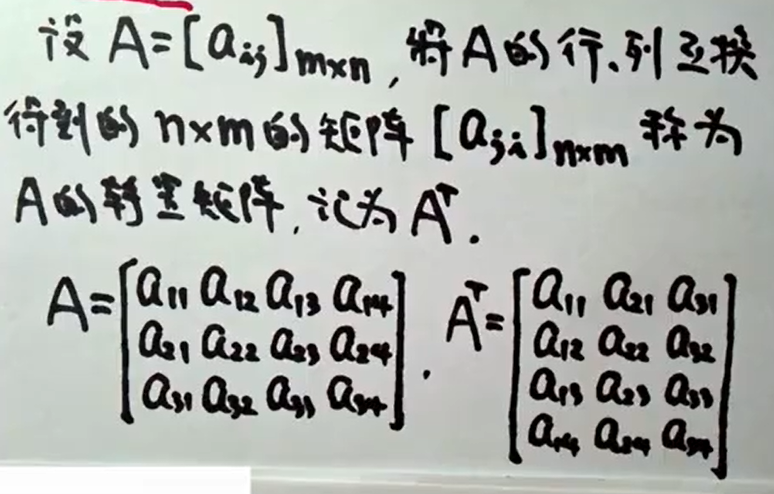 设 A=[aij]m×n, 将A的行、列互换
得到的 n×m的矩阵 [aji]n×m 称为
A的转置矩阵, 记为 Aᵀ.
A=[a11 a12 a13 a14] . Aᵀ=[a11 a21 a31]
a21 a22 a23 a24 a12 a22 a32
a31 a32 a33 a34 a13 a23 a33
a14 a24 a34